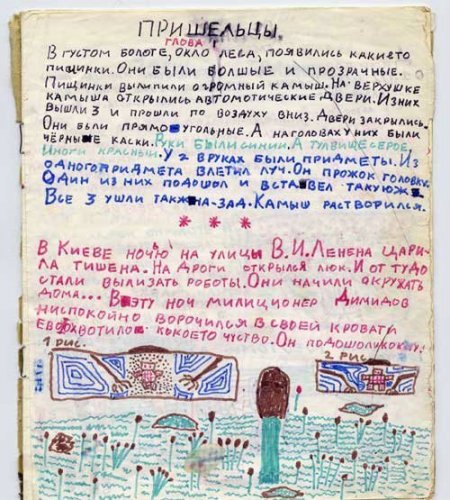 ПРИШЕЛЬЦЫ.
ГЛОВА 1
В ГУСТОМ БОЛОТЕ, ОКЛО ЛЕВА, ПОЯВИЛИСЬ КАКИЕТО
ПИЩИНКИ. ОНИ БЫЛИ БОЛШЫЕ И ПРОЗРАЧНЫЕ.
ПИЩИНКИ ВЫЛИПИЛИ ОГРОМНЫЙ КАМЫШ. НА ВЕРХУШКЕ
КАМЫША ОТКРЫЛИСЬ АВТОМОТИЧЕСКИЕ ДВЕРИ. ИЗ НИХ
ВЫШЛИ 3 И ПРОШЛИ ПО ВОЗДУХУ ВНИЗ. ДВЕРИ ЗАКРЫЛИСЬ.
ОНИ БЫЛИ ПРЯМОУГОЛЬНЫЕ. А НА ГОЛОВАХ У НИХ БЫЛИ
ЧЁРНЫЕ КАСКИ. РУКИ БЫЛИ СИНИИ. А ТУЛВИЩЕ СЕРОЕ,
ИНОГИ КРАСНЫЙ. У 2 ВРУКАХ БЫЛИ ПРИДМЕТЫ. ИЗ
ОДНОГО ПРИДМЕТА ВЛЕТИЛ ЛУЧ. ОН ПРОЖОК ГОЛОВКУ.
ОДИН ИЗ НИХ ПОДОШОЛ И ВСТАВЕЛ ТАКУЮЖ.
ВСЕ 3 УШЛИ ТАКЖ НА-ЗАД. КАМЫШ РАСТВОРИЛСЯ.
* * *
В КИЕВЕ НОЧЮ НА УЛИЦЫ В.И.ЛЕНЕНА ЦАРИ-
ЛА ТИШЕНА. НА ДРОГИ ОТКРЫЛСЯ ЛЮК. И ОТ ТУДО
СТАЛИ ВЫЛИЗАТЬ РОБОТЫ. ОНИ НАЧИЛИ ОКРУЖАТЬ
ДОМА... В ЭТУ НОЧ МИЛИЦИОНЕР ДИМИДОВ
НИСПОКОЙНО ВОРОЧИЛСЯ В СВОЕЙ КРОВАТИ
ЕВО ОХВОТИЛО КОКОЕТО ЧУСТВО. ОН ПОДОШОЛ КОКНУ.
1 РИС.
2 РИС.